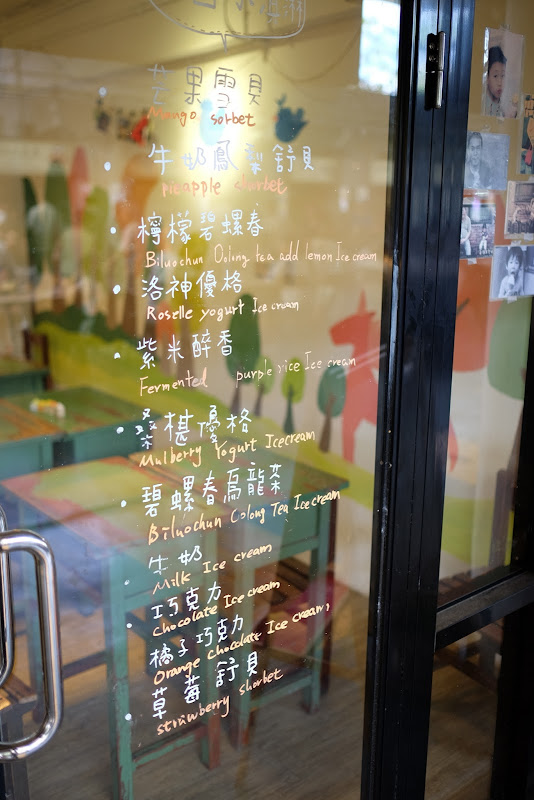 芒果雪貝
Mango sorbet
牛奶鳳梨舒貝
pieapple shorbet
檸檬碧螺春
Biluochun Oolong tea add lemon Ice cream
洛神優格
Roselle yogurt Ice cream
紫米醉香
Fermented purple rice Ice cream
桑椹優格
Mulberry Yogurt Icecream
碧螺春烏龍茶
Biluochun Oolong Tea Ice cream
牛奶
Milk Ice cream
巧克力
Chocolate Ice cream
橘子巧克力
Orange Chocolate Ice cream,
草莓舒貝
strawberry shorbet